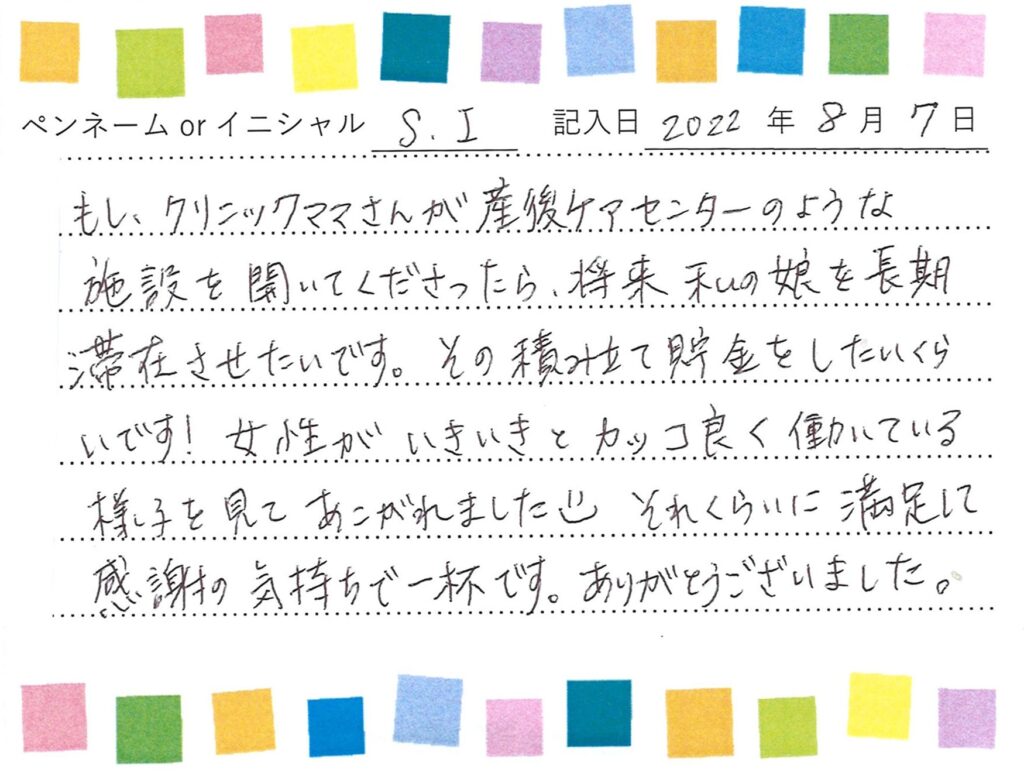 ペンネーム or イニシャル S. I 記入日 2022 年 8 月 7 日
もし、クリニックママさんが産後ケアセンターのような
施設を開いてくださったら、将来私の娘を長期
滞在させたいです。その積み立て貯金をしたいくら
いです! 女性がいきいきとカッコ良く働いている
様子を見てあこがれました それくらいに満足して
感謝の気持ちで一杯です。ありがとうございました。